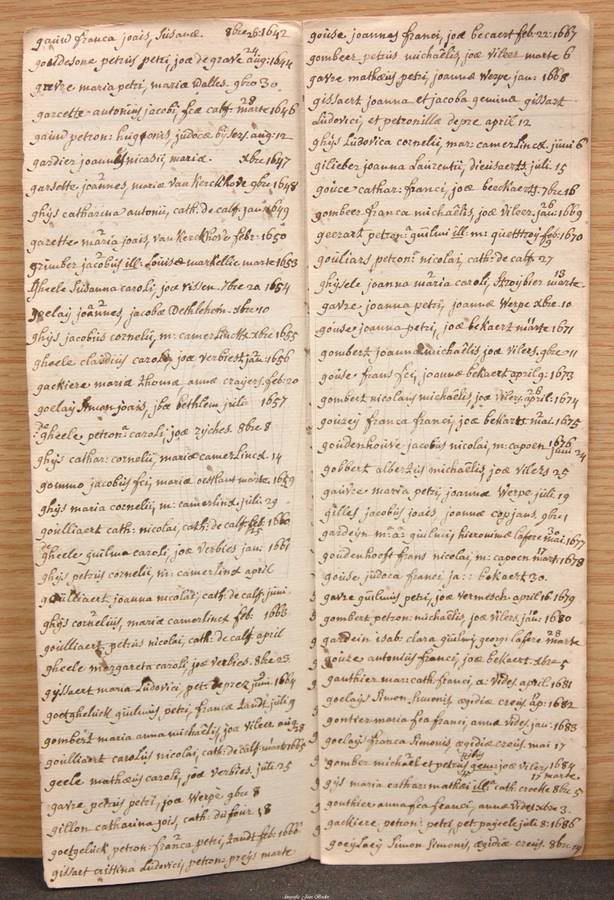 gauw franca joais, susanæ. 8bre 26: 1642
goudesone petrus petri, joæ de grave 24 aug: 1644
grevre maria petri, maria Dalles. 9bro 30
garcette antonius jacobi, fcæ catf: 28 marte 1646
gauw petron: hugonis, judocæ bijsers. aug: 12
gardier joannes nicasii, mariæ. xbre 1647
garsette joannes, mariæ van Kerckhove 9bre 1648
ghijs catharina antonii, cath: de calf. jan: 1649
gazette maria joais, van Kerckhove febr: 1650
grimber jacobus ill: Louisæ markellie marte 1653
gheele susanna caroli, joæ vissen. 7bre 20 1654
goelay joannes, jacobæ Bethlehem. xbre 10
ghijs jacobus cornelii, m: camerlinck xbre 1655
gheele claudius caroli, joæ verbiest jan: 1656
gackiere maria thomæ annæ craijers. feb: 20
goelay simon joais, joæ bethlem juli 1657
gheele petrona caroli, joæ zijches. 8bre 8
ghijs cathar: cornelii, mariæ camerlinck. 14
gommo jacobus fci, mariæ oestlant marte 1659
ghijs maria cornelii, m: camerlinck juli 29
goulliaert cath: nicolai, cath: de calf feb: 1660
gheele guilma caroli, joæ verbies jan: 1661
ghijs petrus cornelii, m: camerlinck april
goulliaert joanna nicolai, cath: de calf. juni
ghijs cornelius, mariæ camerlinck feb: 1663
goulliaert petrus nicolai, cath: de calf april
gheele margareta caroli, joæ verbies. 8bre 23
gijssaert maria Ludovici, pet: deprez juni 1664
goetghelück guilmus petri, francæ Landt. juli 9
gombert maria anna michaelis, joæ vileer aug 28
goulliaert carolus nicolai, cath: de calf. marte 1665
geele matheus caroli, joæ verbies. juli 25
gavre petrus petri, joæ Werpe 9bre 8
gillon catharina jois, cath: dufour 18
goetgelück petron: franca petri, Landt feb: 1666
gissart cristina Ludovici, petronæ preijs marte
gouse joannes franci, joæ becaert feb: 22: 1667
gombeer petrus michaëlis, joæ vileer marte 6
gavre matheus petri, joannæ Werpe jan: 1668
gissaert joanna et jacoba gemina gissart
Ludovici, et petronillæ depre april 12
ghijs Ludovica cornelii, mar: camerlinck juni 6
gilieber joanna Laurentii, dieusaert. juli: 15
gouce cathar: franci, joæ beeckaert. 7bre 16
gombeer franca michaëlis, joæ vileer. 26 jan: 1669
geerart petrona guilmi ill: m: quettroy feb: 1670
gouliars petroni nicolai, cath: de calf. 27
ghijsele joanna maria caroli, stroijbier 13 marte
gavre joanna petri, joannæ Werpe xbre. 10
gouse joanna petri, joæ bekaert marte 1671
gombert joanna michaëlis, joæ vilers. 9bre 11
gouse frans fci, joannæ bekaert april 9: 1673
gombert nicolaus michaëlis, joæ vilers. 26 april: 1674
gouzey franca franci, joæ bekaert mai. 1675
goudenhouve jacobus nicolai, m: capoen 1676 juni 24
gobbert albertus michaëlis, joæ vilers 25
gauvre maria petri, joannæ Werpe juli 19
gilles jacobus joais, joannæ copjans. 9bre 1
gardeijn m: a: guilmij hieronimæ lafere 30 mai: 1677
goudenhooft frans nicolai, m: capoen 17 mart: 1678
gouse judoca franci ja:: bekaert 30.
gavre guilmus petri, joæ vermesch. april 16: 1679
gombert petron: michaëlis, joæ vilers. jan: 1680
gardein isab: clara guilmij, georgi lafere 28 marte
goute antonius franci, joæ bekaert. xbre 5
gauthier mar: cath. franci, a: vides. april 1681
goelaij simon simonis, ægidiæ creus. ap: 1682
gontier maria fca franci, annæ vides. jan: 1683
goelaij franca simonis, ægidiæ creus. mai 17
gomber michaël et petrus gemi: joæ vilers 1684 17 marte
gijs maria cathar: mathæi illi cath: croeke 8bre 5
gouthier anna fca franci, annæ vides xbre 3.
gackiere petron: petri, pet pajiele juli 8: 1686
goeijLaeij simon simonis, ægidiæ creus. 8bre 19